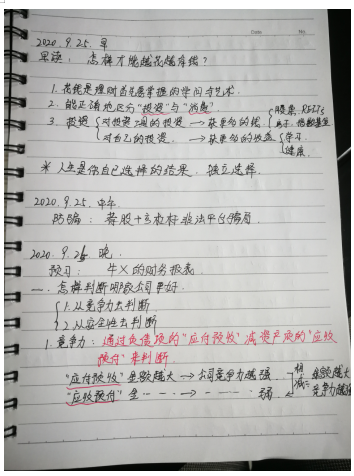 Date No.
2020.9.25.早
早读:怎样才能越花越有钱?
1.花钱是理财首先要掌握的学问与艺术.
2.能正确地区分"投资"与"消费"
3.投资 { 对投资工具的投资 → 获更多的钱 { 股票、REITs 基金、指数基金
对自己的投资. → 获更多的收益 { 学习. 健康.
* 人生是你自己选择的结果. 独立选择.
2020.9.25.中午
防骗:荐股+高杠杆非法平台骗局.
2020.9.25.晚.
预习:牛X的财务报表.
一.怎样判断哪家公司更好.
{ 1.从竞争力去判断
2.从安全性去判断
1.竞争力:通过负债项的"应付预收"减资产项的"应收
预付"来判断
"应付预收"金额越大→公司竞争力越强
"应收预付"金……→……弱
相减=金额越大 竞争力越强